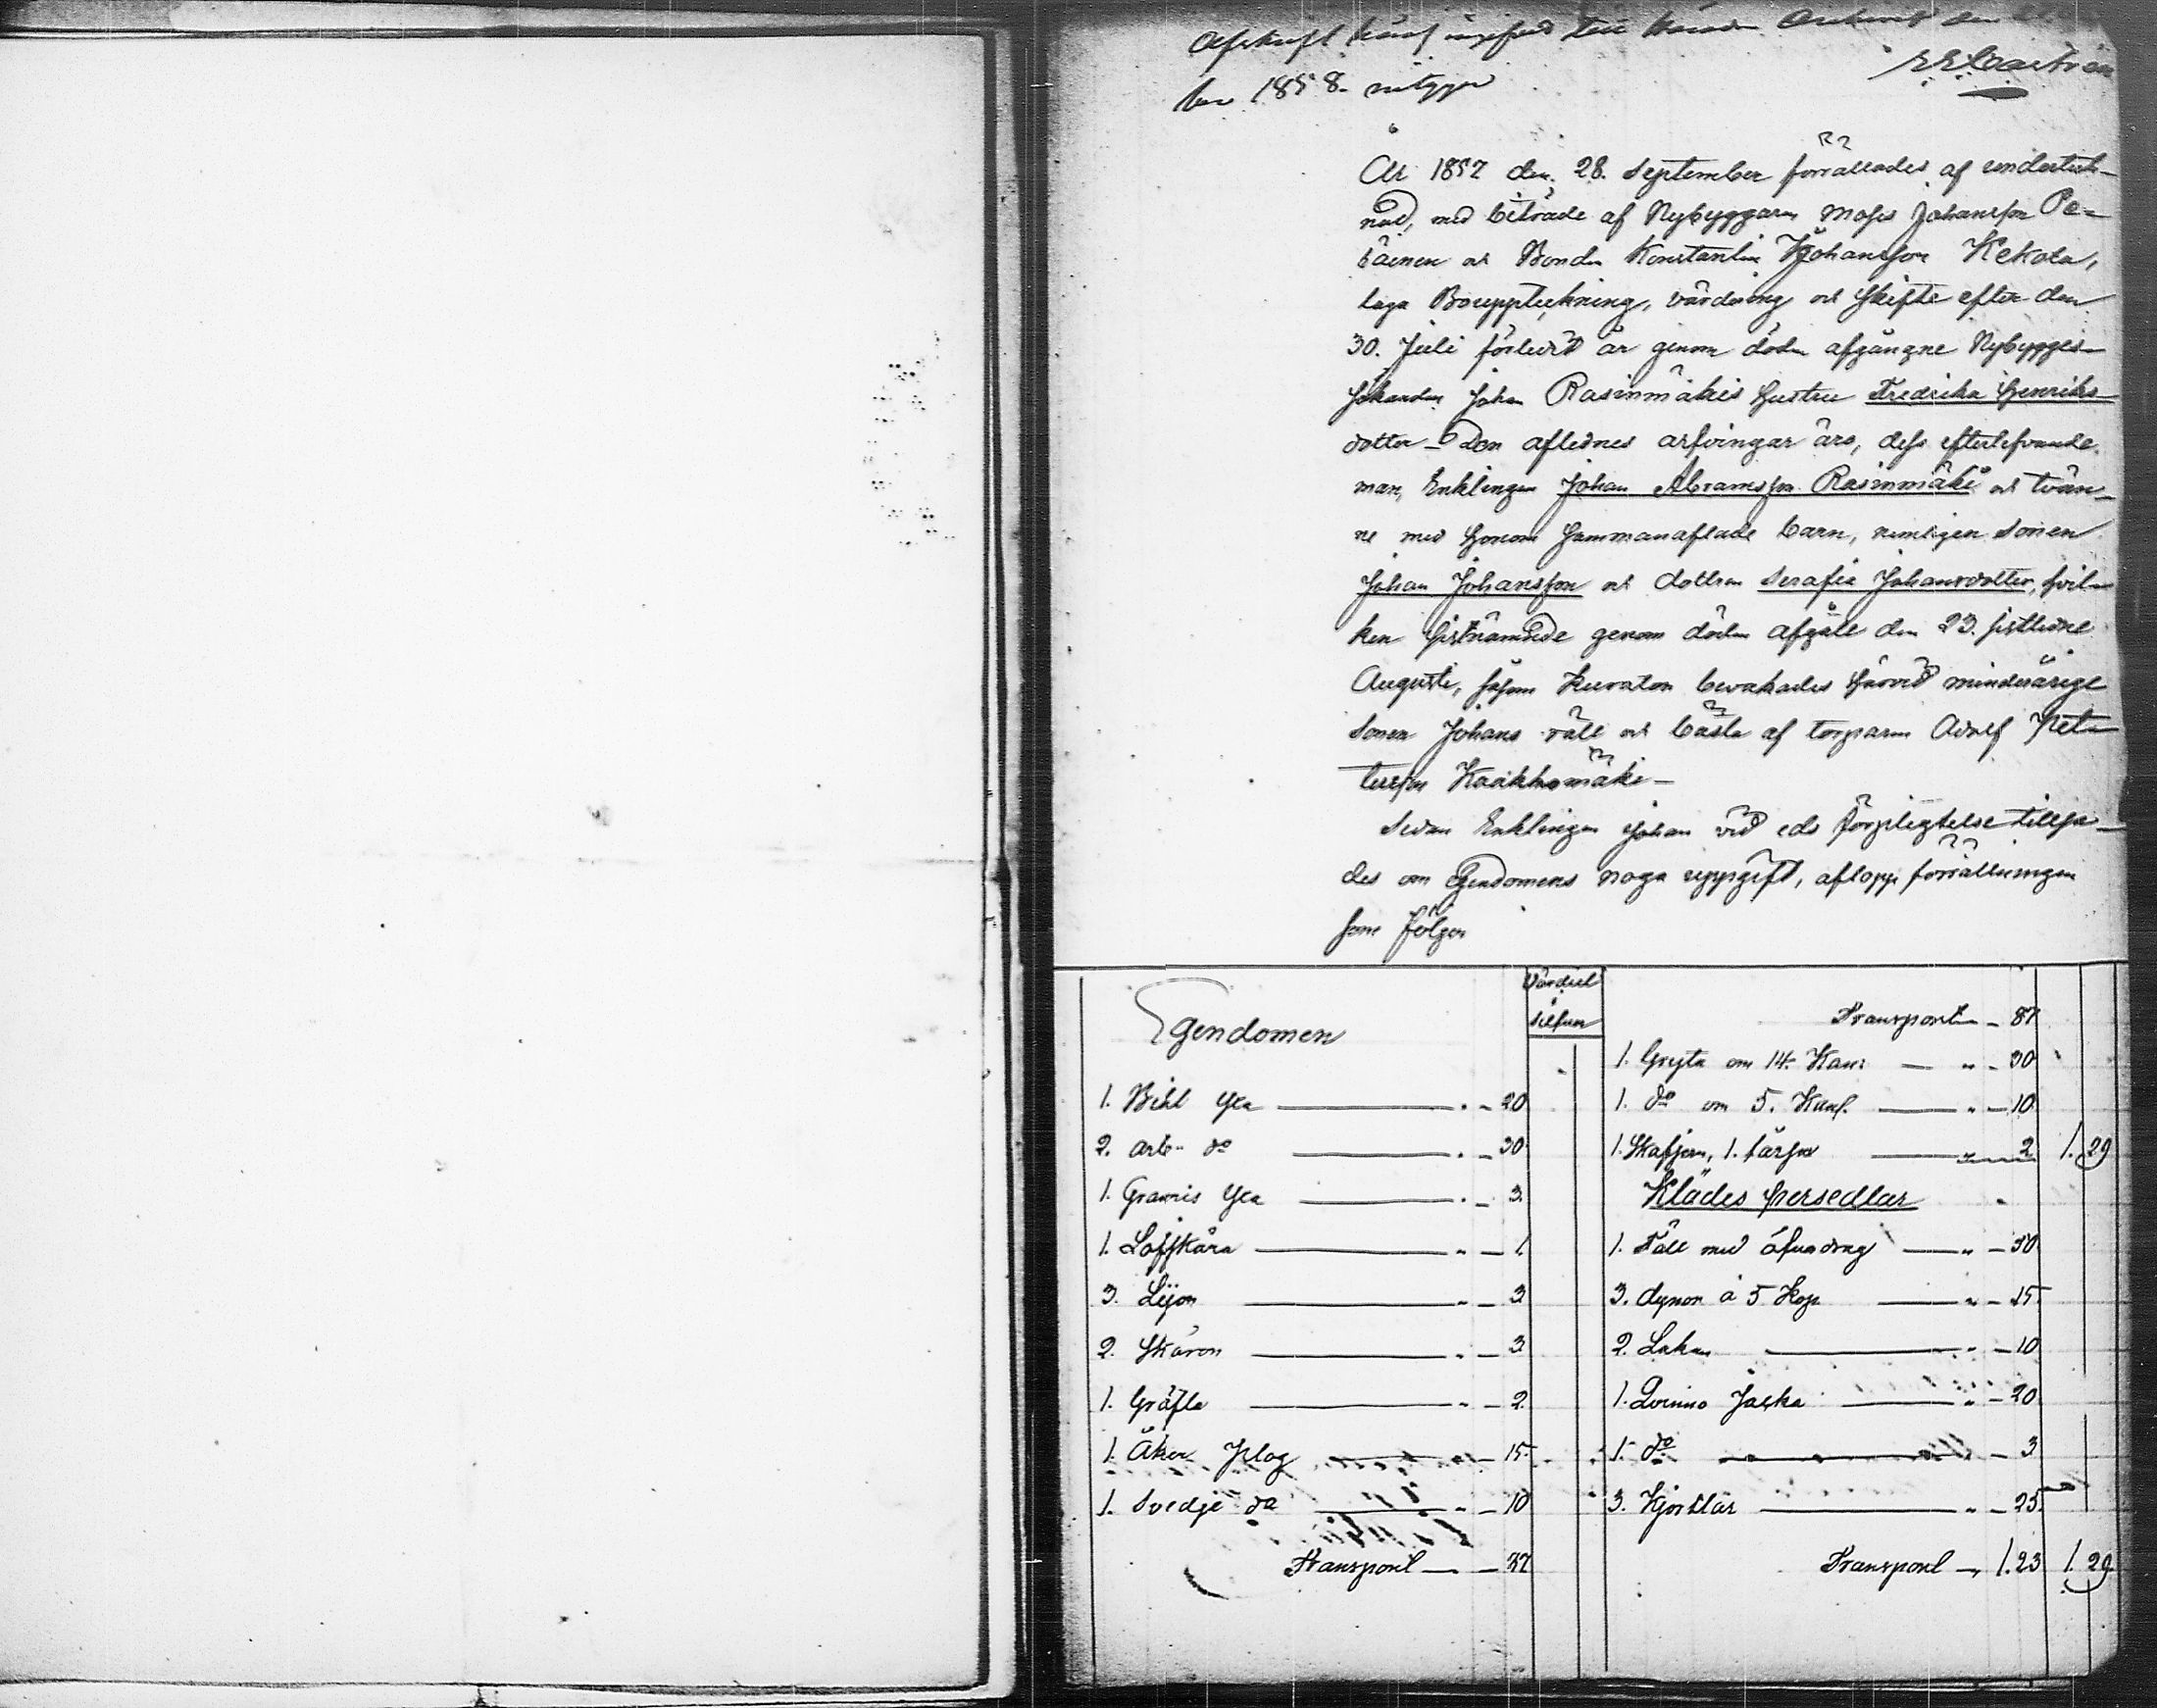 Afskrift häraf
1858.
År 1857 den 28. September förrättades af underteck-
nad, med biträde af Nybyggaren Mats Johansson Pe-
täinen och Bonden Konstantin Johansson Kekola,
laga Bouppteckning, värdering och skifte efter den
30. Juli förledit år genom döden afgångne Nybygges-
Johan Rasinmäkis hustru Fredrika Henriks-
dotter – Den aflednes arfvingar äro, dess efterlefvande
man, Enklingen Johan Abramsson Rasinmäki och tvän-
ne med honom sammanaflade barn, nemligen Sonen
Johan Johansson och dottren Serafia Johansdotter, hvil-
ken sistnämnde genom döden afgått den 23. sistledne
Augusti, såsom Kurator bevakades härvid minderårige
Sonen Johans rätt och bästa af torparen Adolf Pet-
tersson Kaakkomäki –
Sedan Enklingen Johan vid eds förpligtelse tillsa-
des om Egendomens noga uppgift, aflopp förrättningen
som följer
Egendomen
Värdiet
i
Silfver
1. Bihl Yxa — " – 20
2. Arb. do — " – 30
1. Yxa — " – 3
1. — " – 1
3. Lijor — " – 3
2. Skäror — " – 3
1. Gräfta — " – 2
1. Åker Plog — " – 15
1. Svedje do — " – 10
Transport — – 87
Transport – 87
1. Gryta om 14. Kann — " – 30
1. do om 5. Kann. — " – 10
1. Skafjern, 1. — " 2 1. 29
Klädes persedlar
1. Fäll med åfvadrag — " – 50
3. dynor à 5 Kop — " – 15
2. Lakan — " – 10
1. Qvinno Jacka — " – 20
1. do — " – 3
3. Kjortlar — " – 25
Transport — 1. 23 1. 29